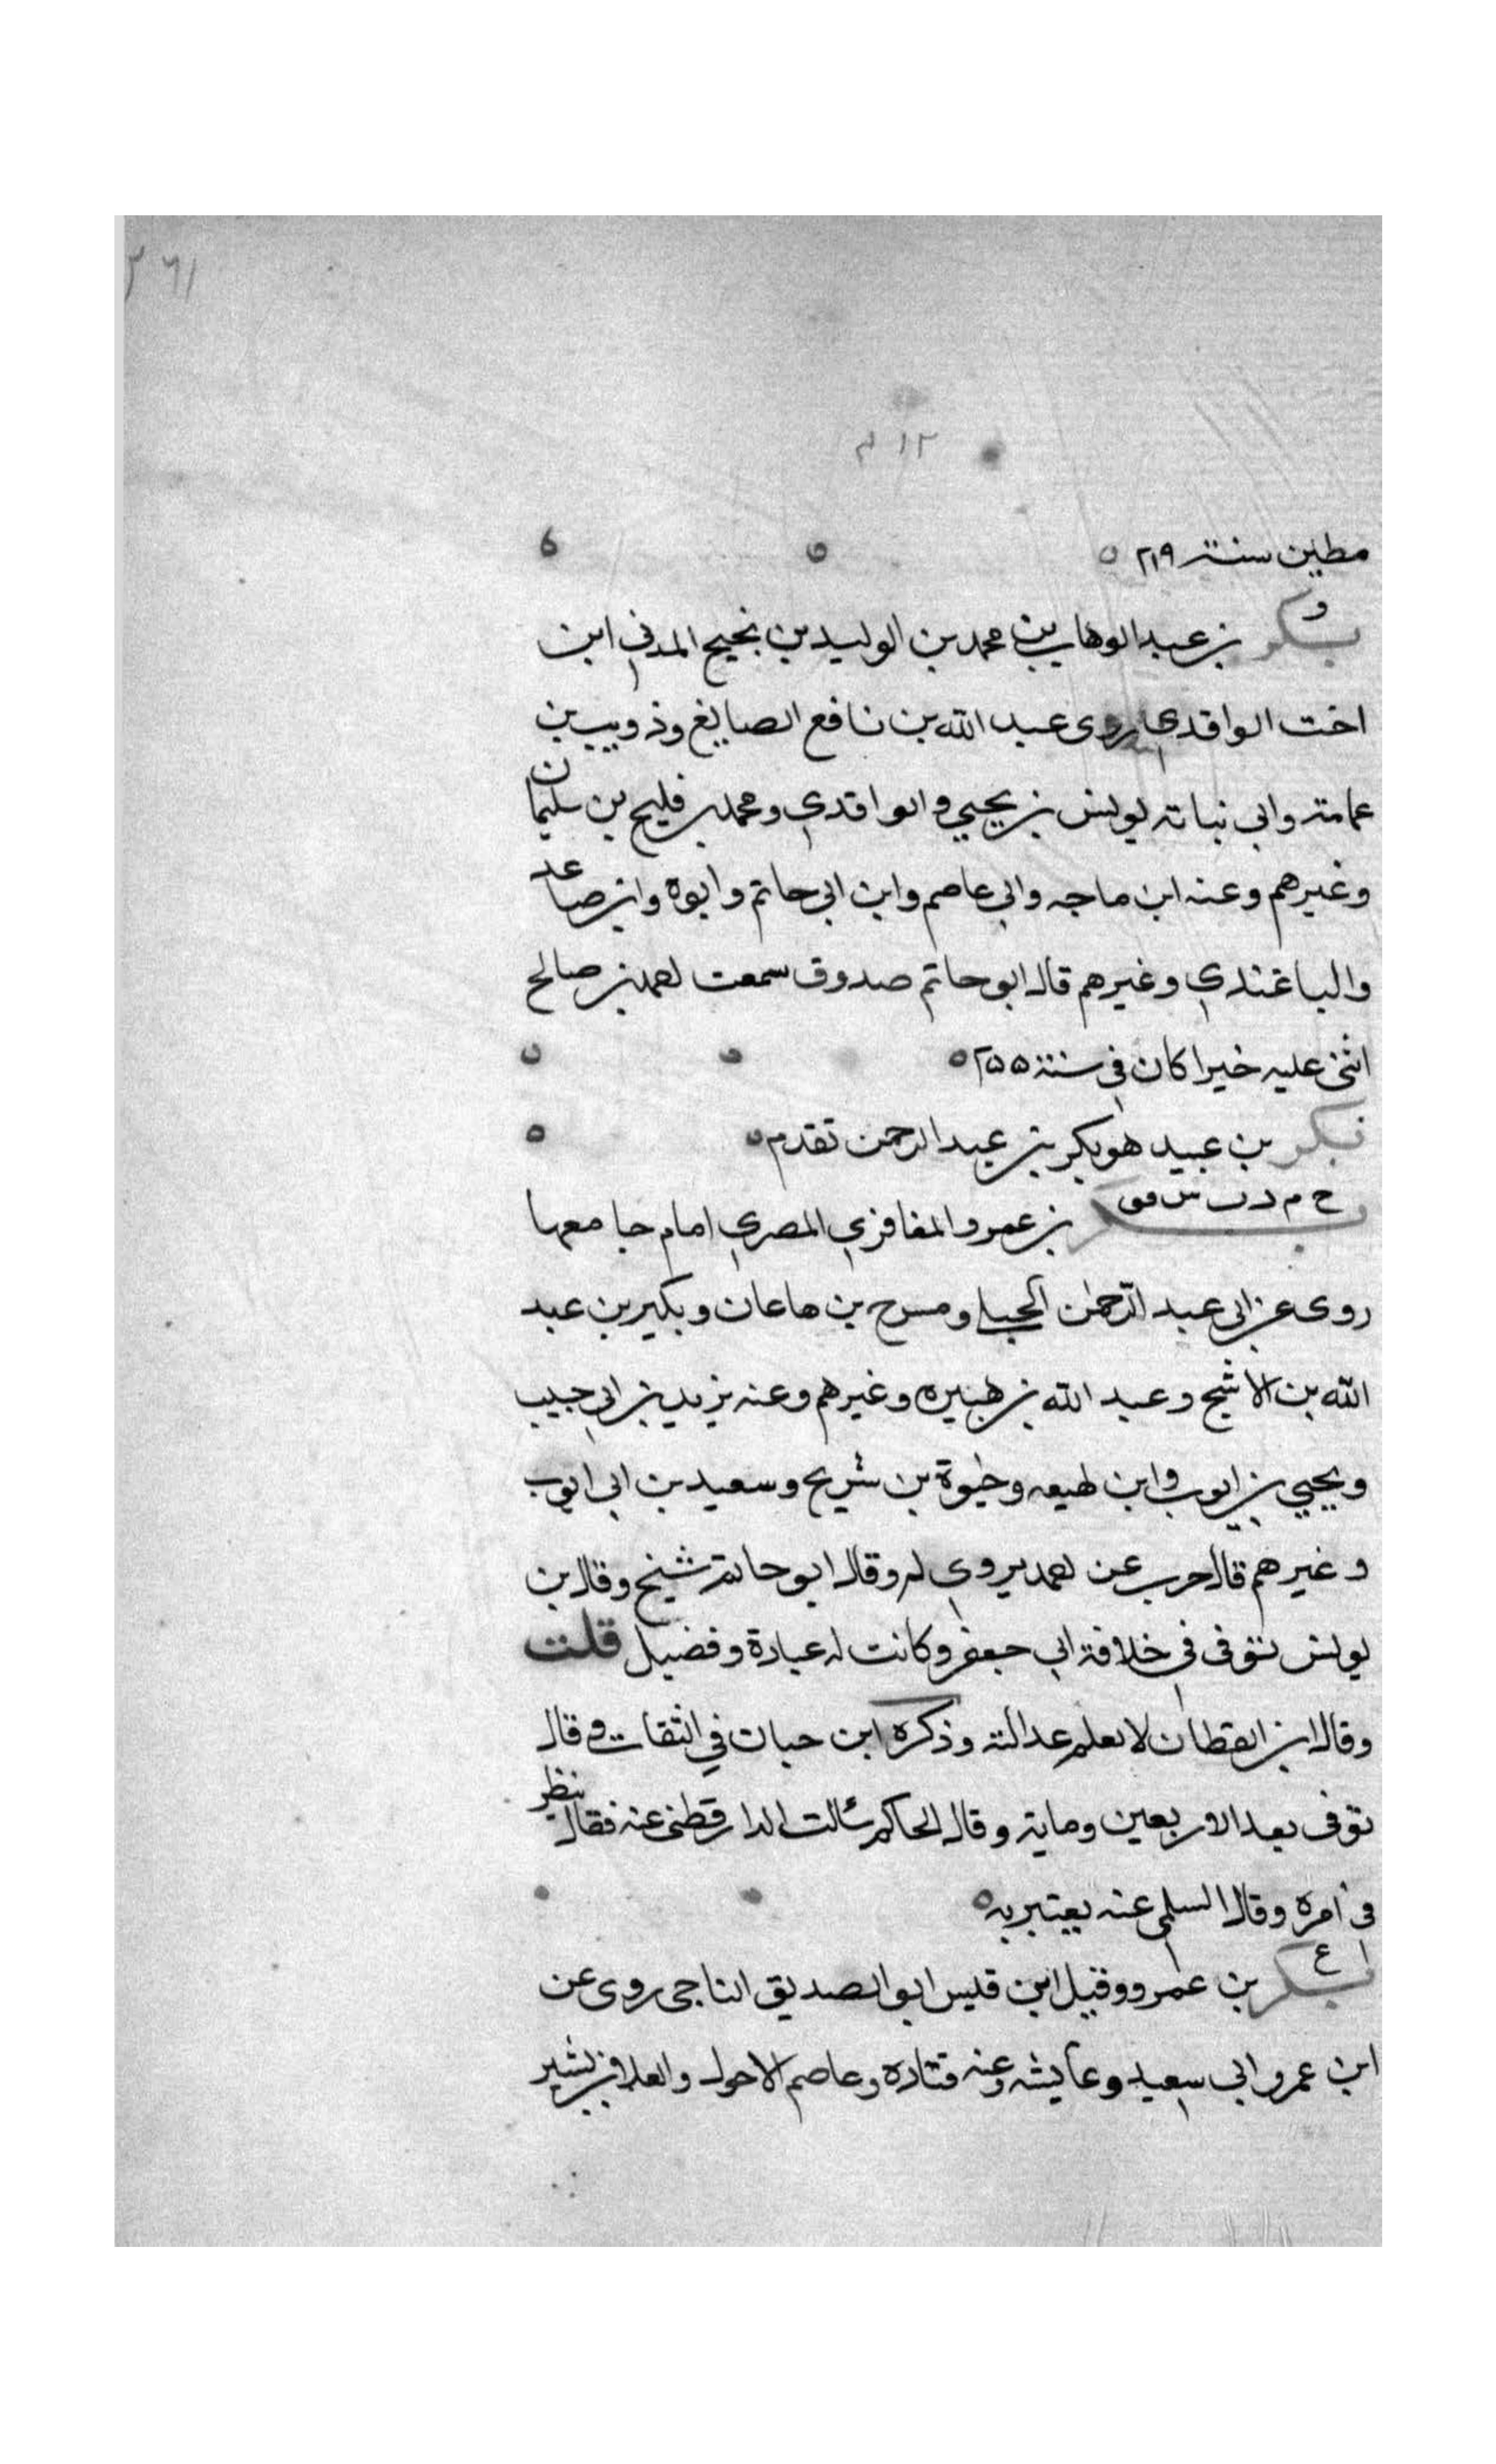 ٣٦١
٢١٢
مطين سنة ٢١٩
ق
بكر بن عبد الوهاب بن محمد بن الوليد بن نجيح المدني ابن
اخت الواقدي روى عبد الله بن نافع الصايغ وذويب بن
عمامة وابي نباته يونس بن يحيي والواقدي ومحمد بن فليح بن سليمان
وغيرهم وعنه ابن ماجه وابي عاصم وابن ابي حاتم وابوه وابن صاعد
والباغندي وغيرهم قال ابو حاتم صدوق سمعت احمد بن صالح
اثنى عليه خيرا كان في سنة ٢٥٥
بكر بن عبيد هو بكر بن عبد الرحمن تقدم
خ م د ت س فق
بكر بن عمرو المغافري المصري امام جامعها
روى عن ابي عبد الرحمن الحبلي ومسرح بن هاعان وبكير بن عبد
الله بن الاشج وعبد الله بن هبيره وغيرهم وعنه يزيد بن ابي حبيب
ويحيي بن ايوب وابن لهيعه وحيوة بن شريح وسعيد بن ابي ايوب
وغيرهم قال حرب عن احمد يروي له وقال ابو حاتم شيخ وقال بن
يونس توفى في خلافة ابي جعفر وكانت له عبادة وفضيل قلت
وقال ابن القطان لا نعلم عدالته وذكره ابن حبان في الثقات وقال
توفى بعد الاربعين وماية وقال الحاكم سألت الدارقطنى عنه فقال ينظر
في امره وقال السلمى عنه يعتبر به
ع
بكر بن عمرو وقيل ابن قيس ابو الصديق الناجى روى عن
ابن عمر وابي سعيد وعايشه وعنه قتاده وعاصم الاحول والعلا بن بشير